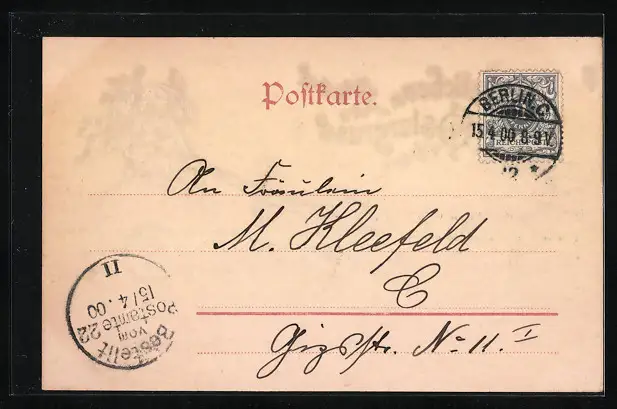 Postkarte.
BERLIN.C.
15.4.00.8-9V.
REICHSPOST
*
An Fräulein
M. Kleefeld
C
Gipsstr. No 11. I
Bestellt
vom
Postamte 22
15/4.00
II